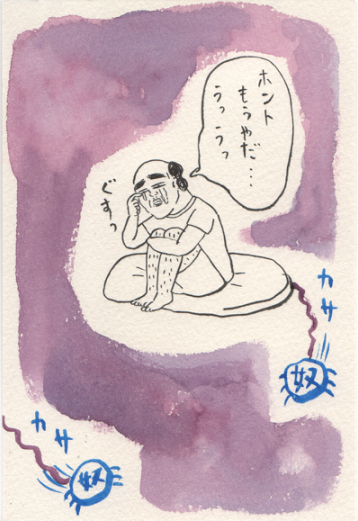 ホント
もうやだ…
うっうっ
ぐすっ
カサ
奴
カサ
奴